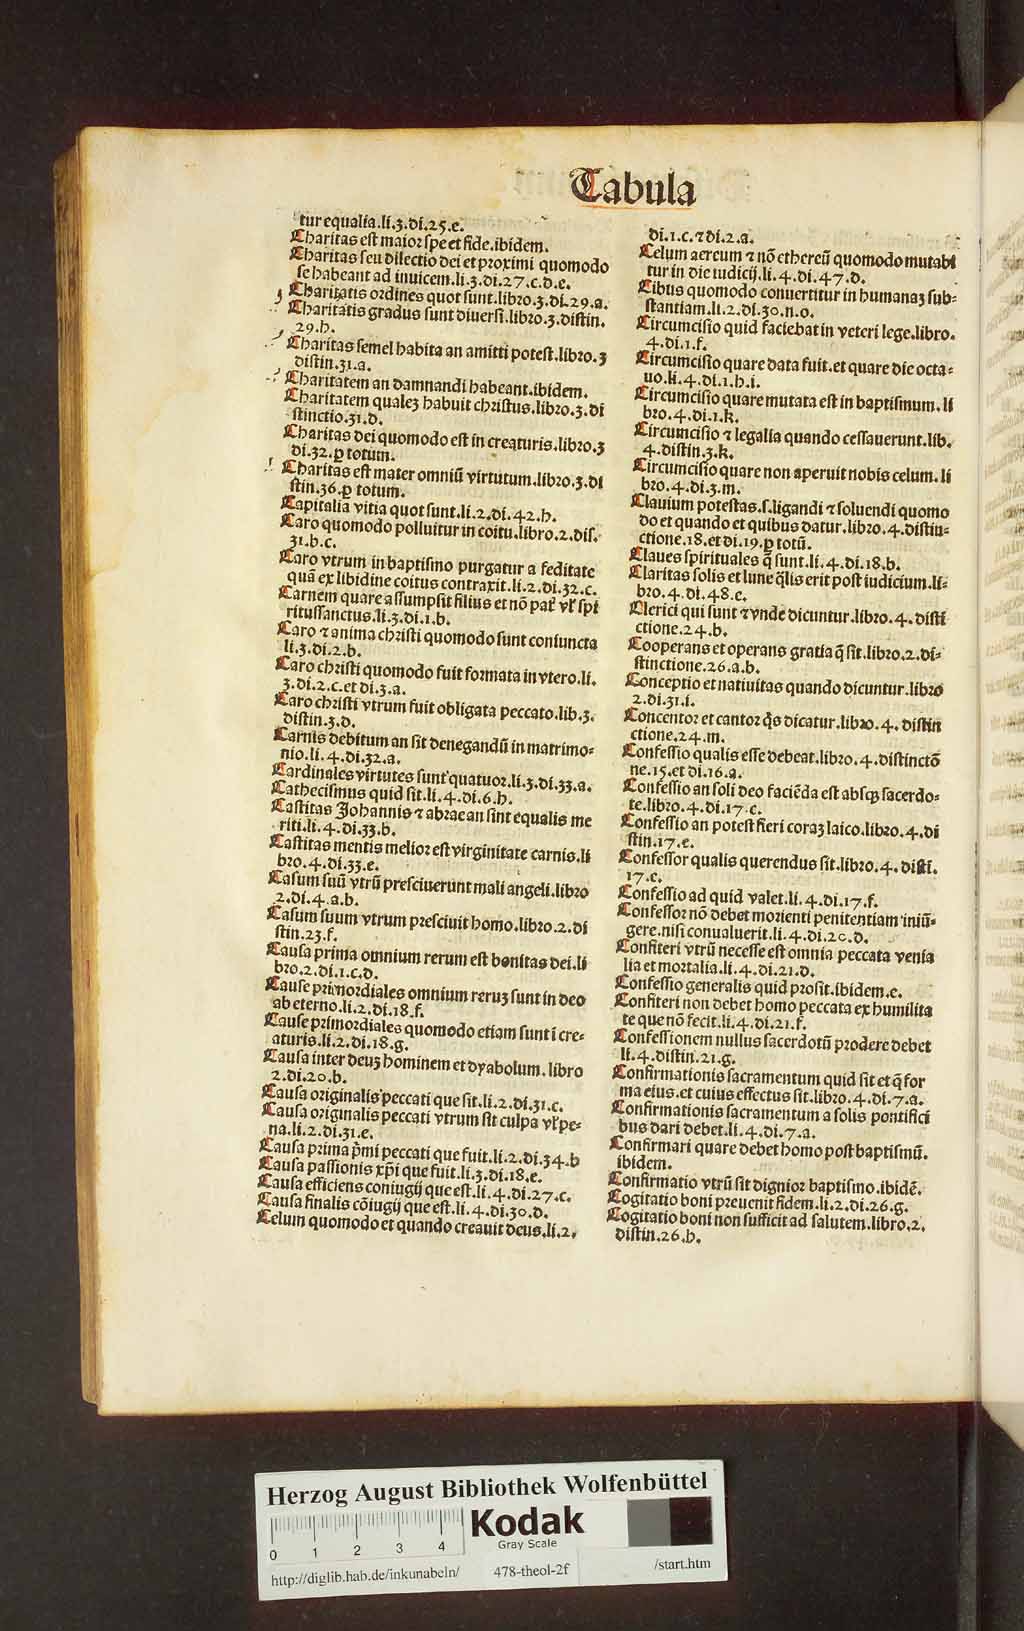 Tabula
tur equalia.li.3.di.25.e.
Charitas est maior spe et fide.ibidem.
Charitas seu dilectio dei et proximi quomodo
se habeant ad inuicem.li.3.di.27.c.d.e.
Charitatis ordines quot sunt.libro.3.di.29.a.
Charitatis gradus sunt diuersi.libro.3.distin.
29.h.
Charitas semel habita an amitti potest.libro.3
distin.31.a.
Charitatem an damnandi habeant.ibidem.
Charitatem qualeʒ habuit christus.libro.3.di
stinctio.31.d.
Charitas dei quomodo est in creaturis.libro.3
di.32.ꝑ totum.
Charitas est mater omniū virtutum.libro.3.di
stin.36.ꝑ totum.
Capitalia vitia quot sunt.li.2.di.42.h.
Caro quomodo polluitur in coitu.libro.2.dis.
31.b.c.
Caro vtrum in baptismo purgatur a feditate
quā ex libidine coitus contraxit.li.2.di.32.c.
Carnem quare assumpsit filius et nō pat̄ vl̄ spi
ritussanctus.li.3.di.1.b.
Caro ⁊ anima christi quomodo sunt coniuncta
li.3.di.2.b.
Caro christi quomodo fuit formata in vtero.li.
3.di.2.c.et di.3.a.
Caro christi vtrum fuit obligata peccato.lib.3.
distin.3.d.
Carnis debitum an sit denegandū in matrimo-
nio.li.4.di.32.a.
Cardinales virtutes sunt quatuor.li.3.di.33.a.
Cathecismus quid sit.li.4.di.6.h.
Castitas Johannis ⁊ abrae an sint equalis me
riti.li.4.di.33.b.
Castitas mentis melior est virginitate carnis.li
bro.4.di.33.e.
Casum suū vtrū presciuerunt mali angeli.libro
2.di.4.a.b.
Casum suum vtrum presciuit homo.libro.2.di
stin.23.f.
Causa prima omnium rerum est bonitas dei.li
bro.2.di.1.c.d.
Cause primordiales omnium reruʒ sunt in deo
ab eterno.li.2.di.18.f.
Cause primordiales quomodo etiam sunt ī cre-
aturis.li.2.di.18.g.
Causa inter deuʒ hominem et dyabolum.libro
2.di.20.b.
Causa originalis peccati que sit.li.2.di.31.c.
Causa originalis peccati vtrum sit culpa vl̄ pe-
na.li.2.di.31.e.
Causa prima p̄mi peccati que fuit.li.2.di.34.b
Causa passionis xp̄i que fuit.li.3.di.18.e.
Causa efficiens coniugij que est.li.4.di.27.c.
Causa finalis cōiugij que est.li.4.di.30.d.
Celum quomodo et quando creauit deus.li.2.
di.1.c.⁊ di.2.a.
Celum aereum ⁊ nō ethereū quomodo mutabi
tur in die iudicij.li.4.di.47.d.
Cibus quomodo conuertitur in humanaʒ sub-
stantiam.li.2.di.30.n.o.
Circumcisio quid faciebat in veteri lege.libro.
4.di.1.f.
Circumcisio quare data fuit.et quare die octa-
uo.li.4.di.1.h.i.
Circumcisio quare mutata est in baptismum.li
bro.4.di.1.k.
Circumcisio ⁊ legalia quando cessauerunt.lib.
4.distin.3.k.
Circumcisio quare non aperuit nobis celum.li
bro.4.di.3.m.
Clauium potestas.s.ligandi ⁊ soluendi quomo
do et quando et quibus datur.libro.4.distin-
ctione.18.et di.19.ꝑ totū.
Claues spirituales q̄ sunt.li.4.di.18.b.
Claritas solis et lune q̄lis erit post iudicium.li-
bro.4.di.48.e.
Clerici qui sunt ⁊ vnde dicuntur.libro.4.disti
ctione.24.b.
Cooperans et operans gratia q̄ sit.libro.2.di-
stinctione.26.a.b.
Conceptio et natiuitas quando dicuntur.libro
2.di.31.i.
Concentor et cantor q̇s dicatur.libro.4.distin
ctione.24.m.
Confessio qualis esse debeat.libro.4.distinctō
ne.15.et di.16.a.
Confessio an soli deo faciēda est absqꝫ sacerdo-
te.libro.4.di.17.c.
Confessio an potest fieri coraʒ laico.libro.4.di
stin.17.e.
Confessor qualis querendus sit.libro.4.disti.
17.e.
Confessio ad quid valet.li.4.di.17.f.
Confessor nō debet morienti penitentiam iniū-
gere.nisi conualuerit.li.4.di.20.d.
Confiteri vtrū necesse est omnia peccata venia
lia et mortalia.li.4.di.21.d.
Confessio generalis quid prosit.ibidem.e.
Confiteri non debet homo peccata ex humilita
te que nō fecit.li.4.di.21.f.
Confessionem nullus sacerdotū prodere debet
li.4.distin.21.g.
Confirmationis sacramentum quid sit et q̄ for
ma eius.et cuius effectus sit.libro.4.di.7.a.
Confirmationis sacramentum a solis pontifici
bus dari debet.li.4.di.7.a.
Confirmari quare debet homo post baptismū.
ibidem.
Confirmatio vtrū sit dignior baptismo.ibidē.
Cogitatio boni preuenit fidem.li.2.di.26.g.
Cogitatio boni non sufficit ad salutem.libro.2.
distin.26.h.
Herzog August Bibliothek Wolfenbüttel
0 1 2 3 4
Kodak
Gray Scale
http://diglib.hab.de/inkunabeln/ 478-theol-2f /start.htm